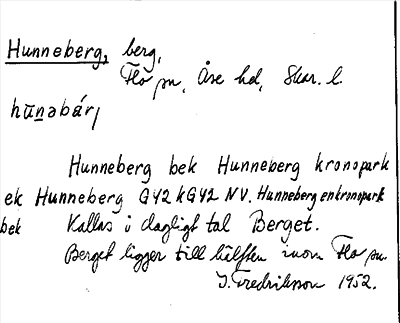 Hunneberg, berg,
Flo sn, Åse hd, Skar. l.
hūnəbár,
Hunneberg bek Hunneberg kronopark
ek Hunneberg G42 kG42 NV. Hunneberg enkronopark
bek Kallas i dagligt tal Berget.
Berget ligger till hälften inom Flo sn.
J. Fredriksson 1952.